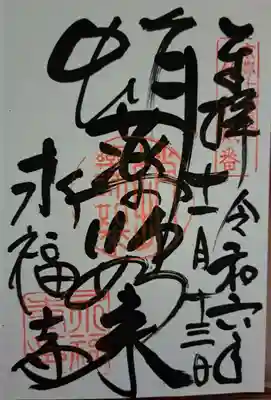 奉拝
令和六年
十一月十三日
蛸薬師如来
永福寺